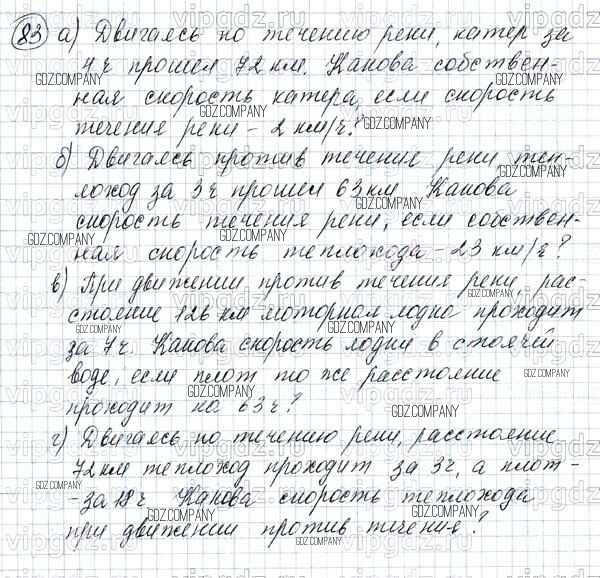 83 а) Двигаясь по течению реки, катер за
4 ч прошел 72 км. Какова собствен-
ная скорость катера, если скорость
течения реки – 2 км/ч?
б) Двигаясь против течения реки теп-
лоход за 3ч прошел 63 км Какова
скорость течения реки, если собствен-
ная скорость теплохода – 23 км/ч?
в) При движении против течения реки, рас-
стояние 126 км моторная лодка проходит
за 7ч. Какова скорость лодки в стоячей
воде, если плот то же расстояние
проходит на 63ч?
г) Двигаясь по течению реки, расстояние
72 км теплоход проходит за 3ч, а плот-
- за 18ч Какова скорость теплохода
при движении против течения?